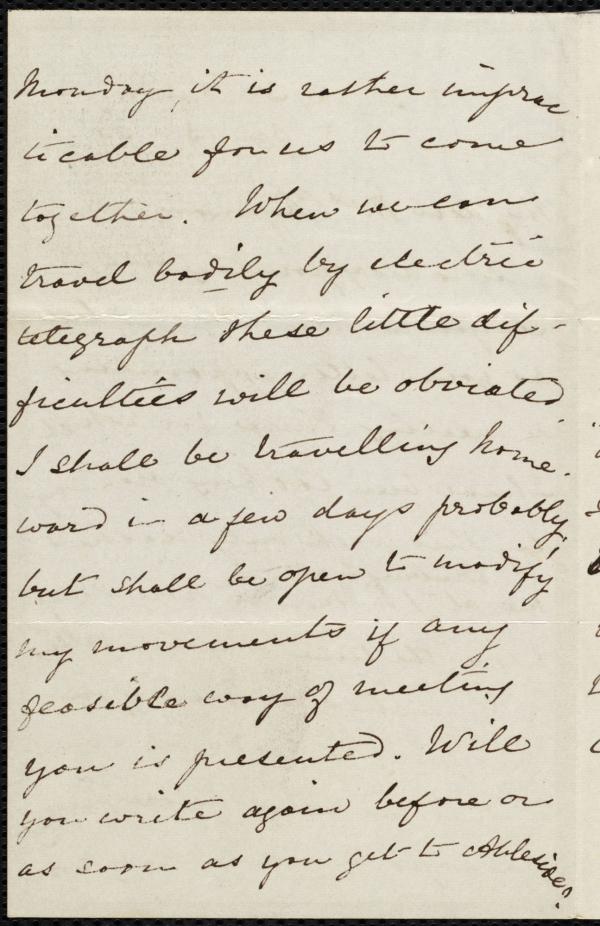 Monday, it is rather imprac
ticable for us to come
together. When we can
travel bodily by electric
telegraph these little dif-
ficulties will be obviated
I shall be travelling home-
ward in a few days probably,
but shall be open to modify
my movements if any
feasible way of meeting
you is presented. Will
you write again before or
as soon as you get to Ambleside?